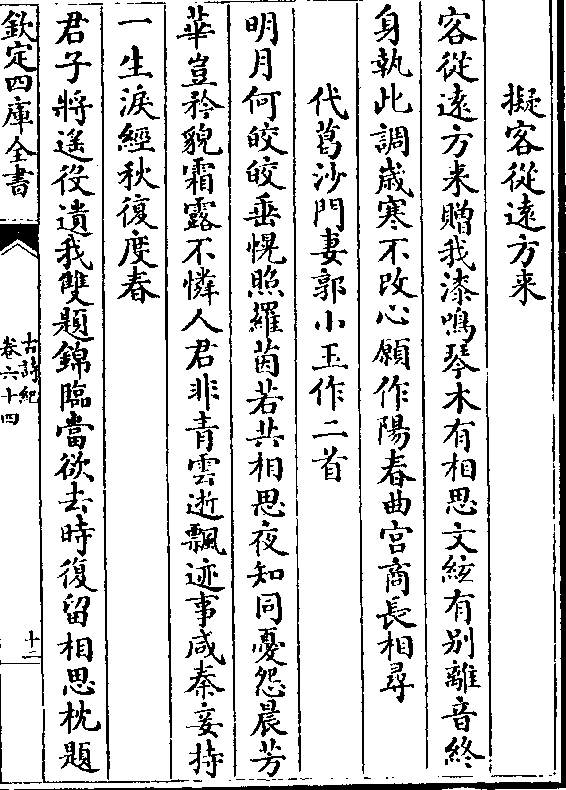 擬客從遠方来
客從遠方来贈我漆鳴琴木有相思文絃有别離音終
身執此調歲寒不改心願作陽春曲宫商長相尋
代葛沙門妻郭小玉作二首
明月何皎皎垂愰照羅茵若共相思夜知同憂怨晨芳
華豈矜貌霜露不憐人君非青雲逝飄迹事咸秦妾持
一生淚經秋復度春
君子將遙役遺我雙題錦臨當欲去時復留相思枕題
欽定四庫全書
古詩紀
卷六十四
十二